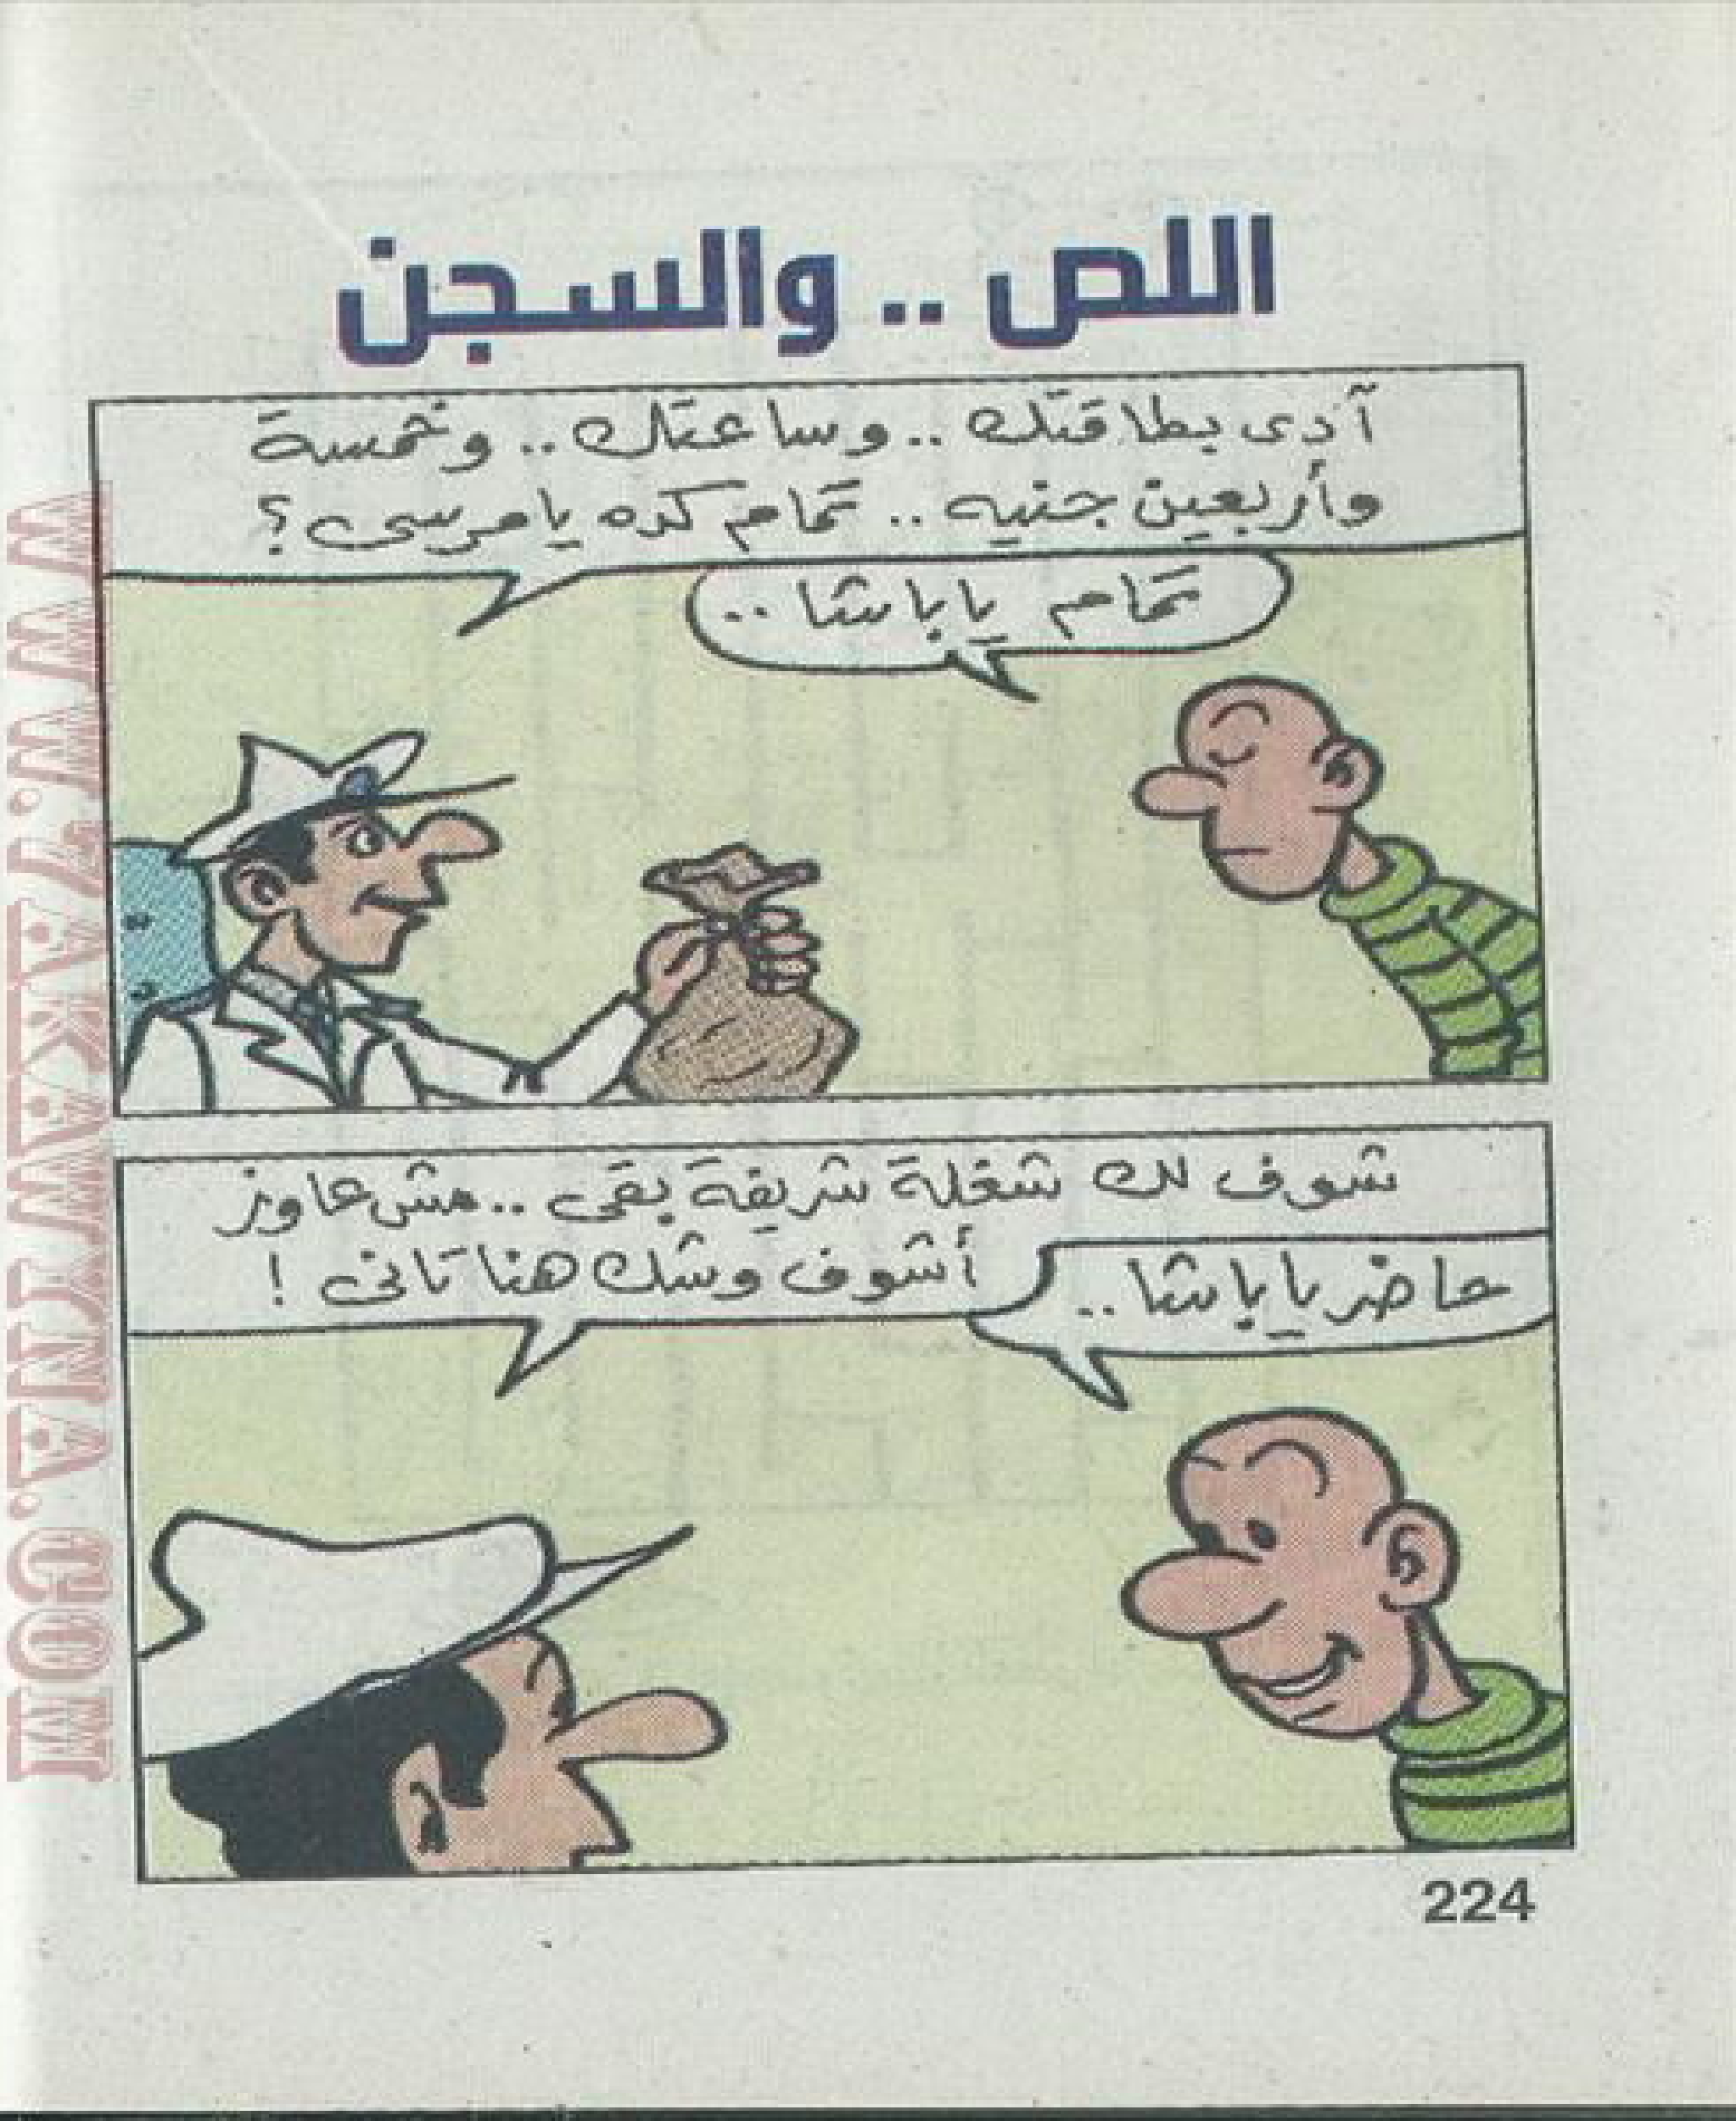 اللص .. والسجن
آدى بطاقتك .. وساعتك .. وخمسة
وأربعين جنيه .. تمام كده يا مرسى ؟
تمام يا باشا ..
شوف لك شغلة شريفة بقى .. مش عاوز
أشوف وشك هنا تانى !
حاضر يا باشا ..
224